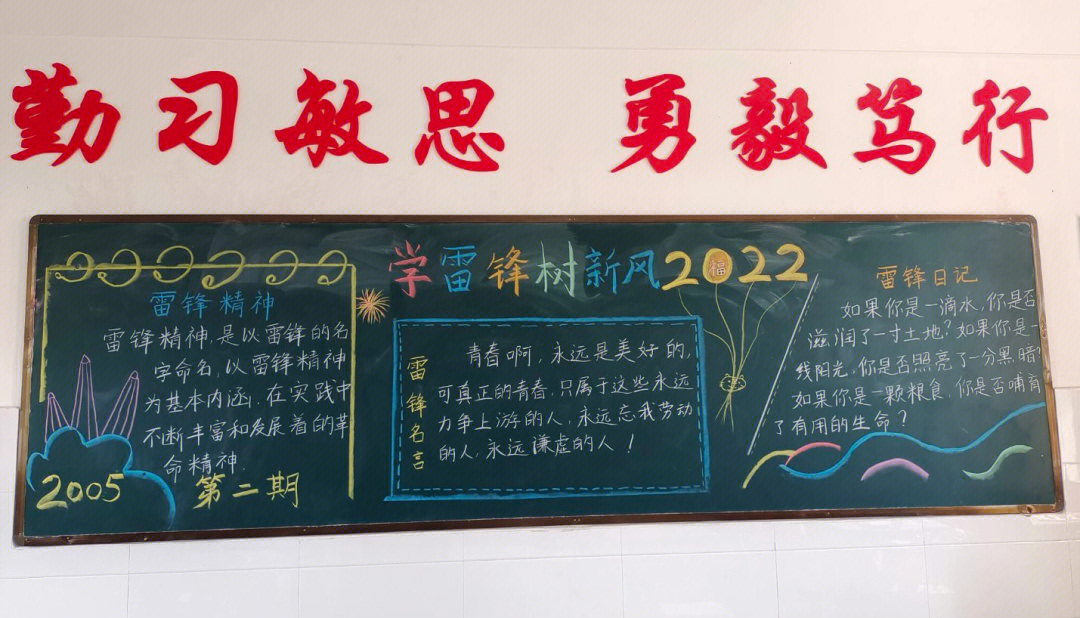 勤习敏思 勇毅笃行
学雷锋树新风2022
福
雷锋精神
雷锋精神,是以雷锋的名
字命名,以雷锋精神
为基本内涵,在实践中
不断丰富和发展着的革
命精神.
2005 第二期
雷锋名言
青春啊,永远是美好的,
可真正的青春,只属于这些永远
力争上游的人,永远忘我劳动
的人,永远谦虚的人!
雷锋日记
如果你是一滴水,你是否
滋润了一寸土地?如果你是一
线阳光,你是否照亮了一分黑暗?
如果你是一颗粮食,你是否哺育
了有用的生命?